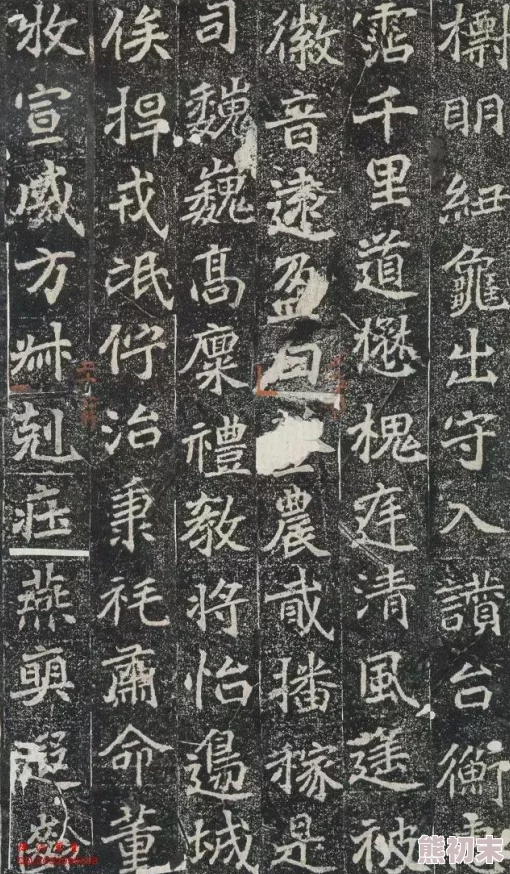 檦明紐龜出守入讚台衡
霑千里道懋槐庭清風遠被
徽音遠盈曰農戢播稼是
司巍巍高廩禮教將怡邊城
俟捍戎氓佇治秉旄肅命董
牧宣威方叔剋莊燕齡
熊初末